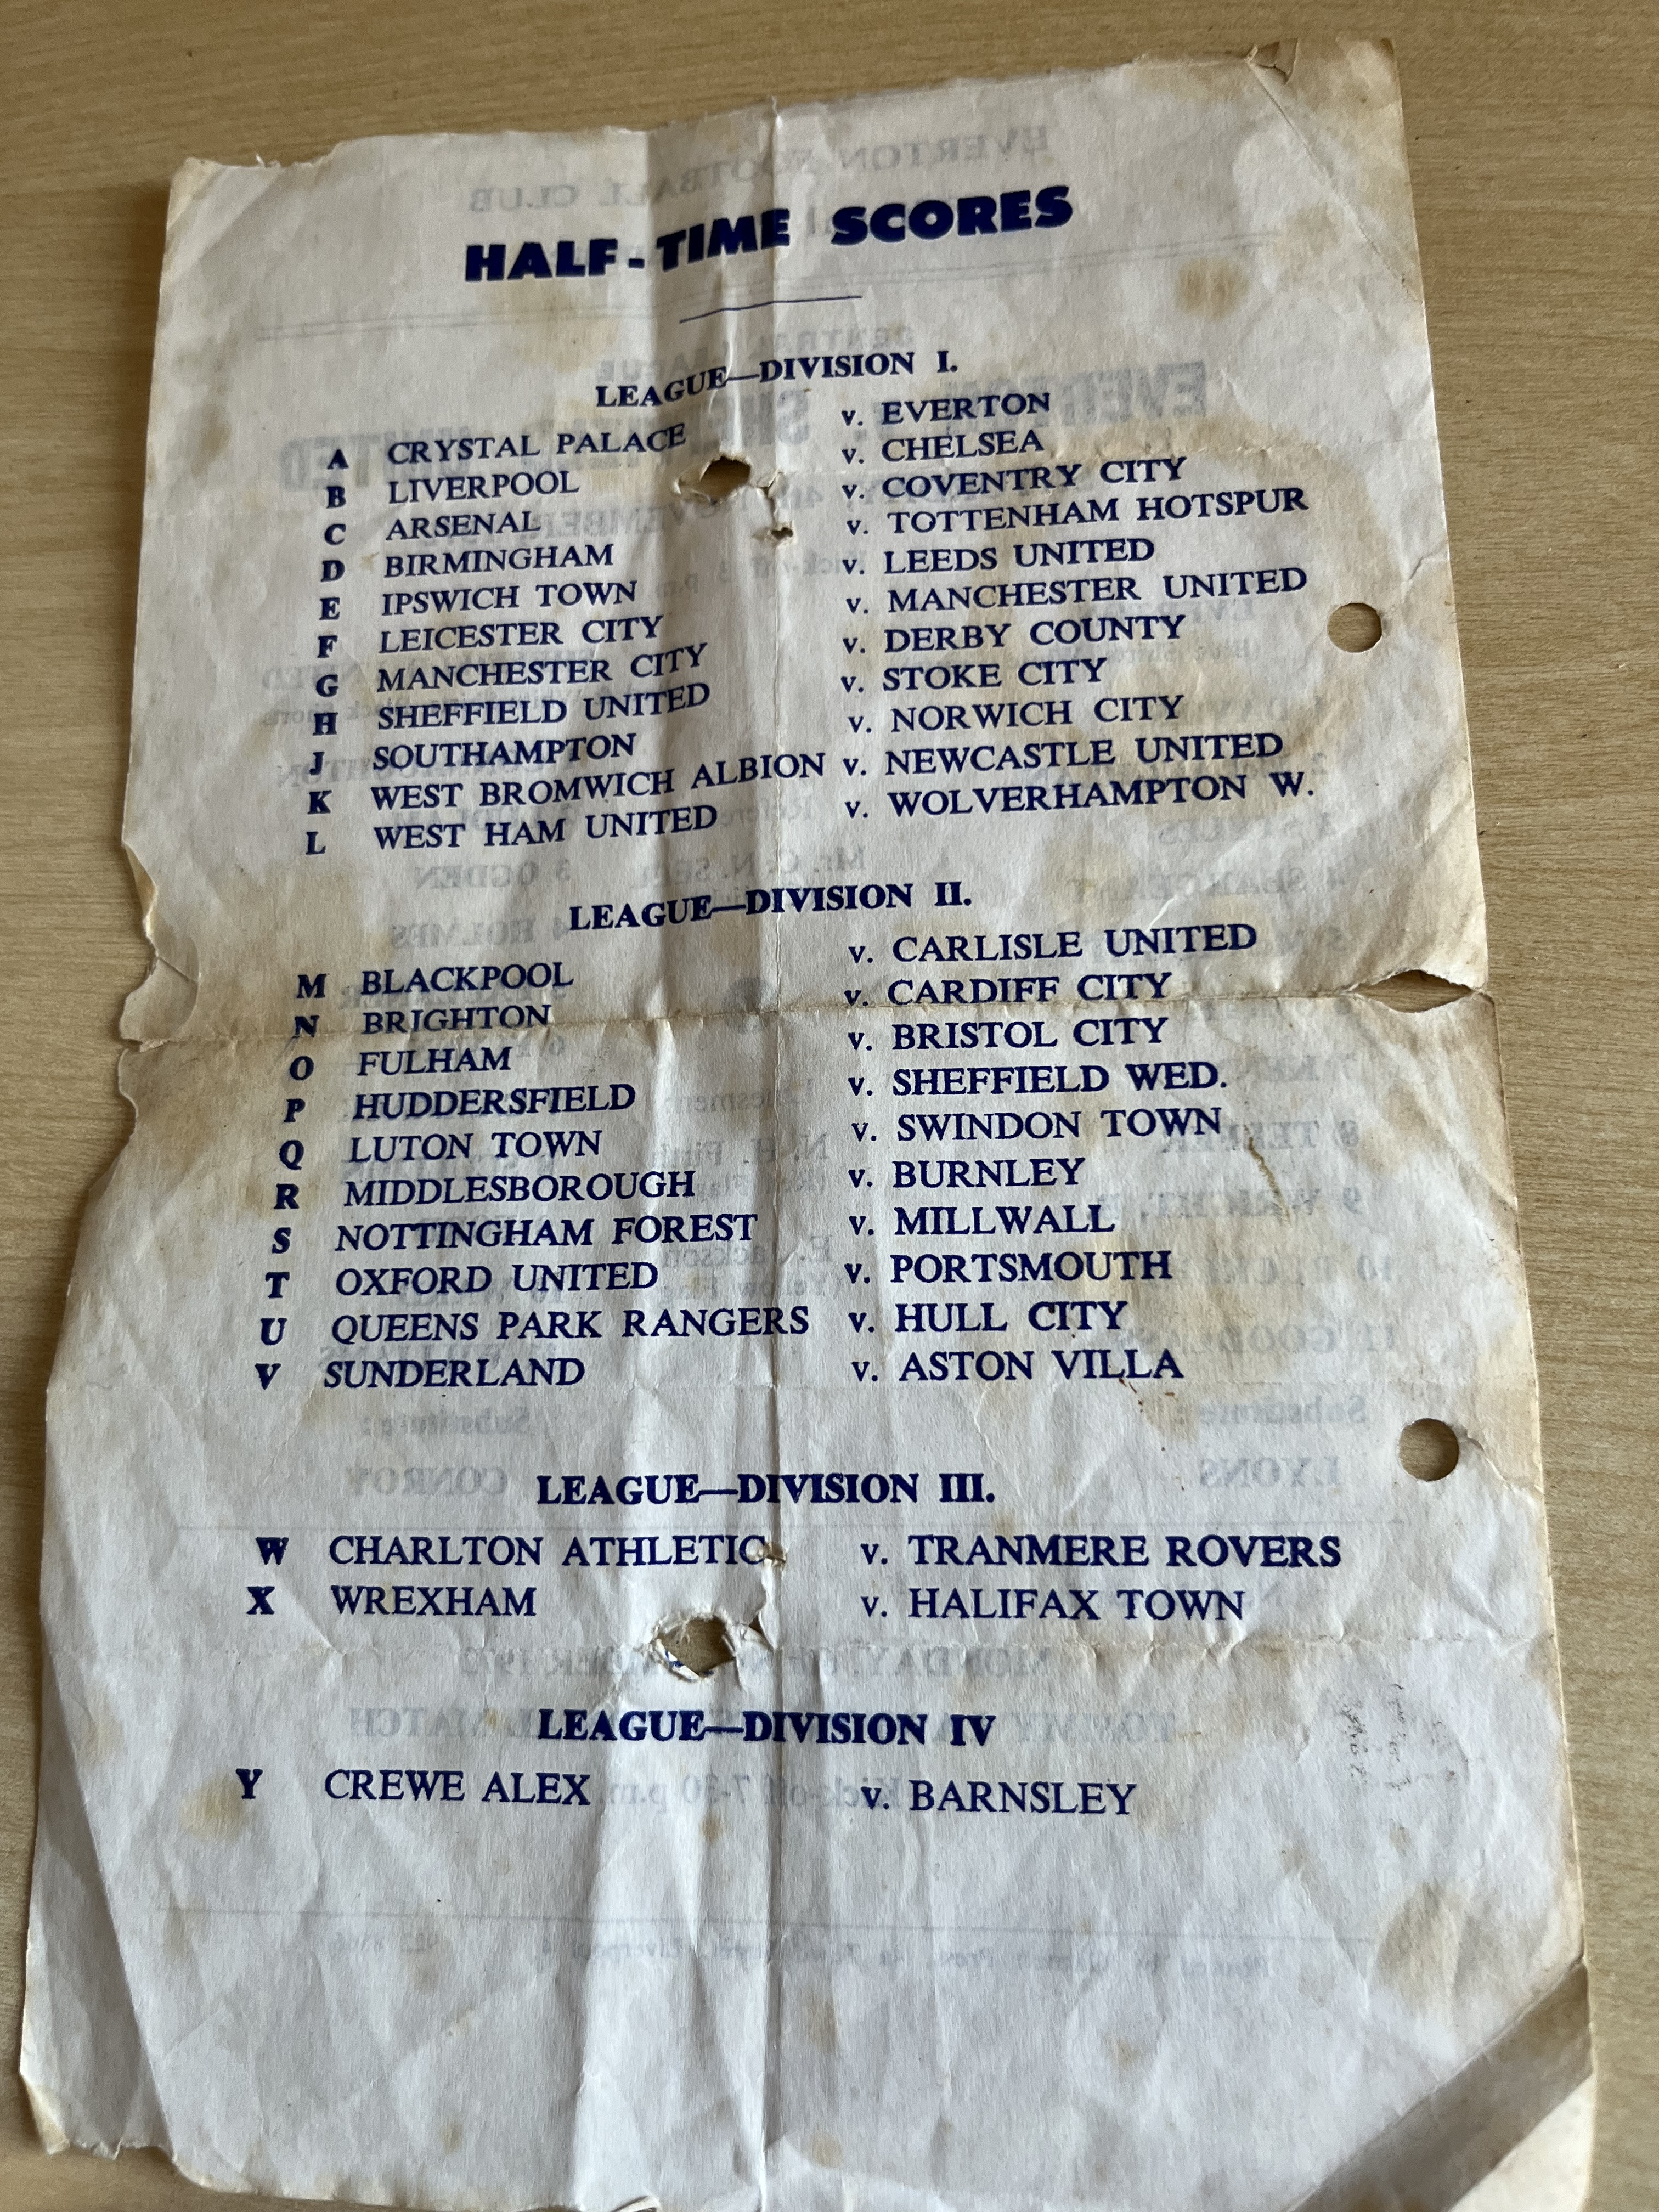 HALF-TIME SCORES
LEAGUE—DIVISION I.
A CRYSTAL PALACE v. EVERTON
B LIVERPOOL v. CHELSEA
C ARSENAL v. COVENTRY CITY
D BIRMINGHAM v. TOTTENHAM HOTSPUR
E IPSWICH TOWN v. LEEDS UNITED
F LEICESTER CITY v. MANCHESTER UNITED
G MANCHESTER CITY v. DERBY COUNTY
H SHEFFIELD UNITED v. STOKE CITY
J SOUTHAMPTON v. NORWICH CITY
K WEST BROMWICH ALBION v. NEWCASTLE UNITED
L WEST HAM UNITED v. WOLVERHAMPTON W.
LEAGUE—DIVISION II.
M BLACKPOOL v. CARLISLE UNITED
N BRIGHTON v. CARDIFF CITY
O FULHAM v. BRISTOL CITY
P HUDDERSFIELD v. SHEFFIELD WED.
Q LUTON TOWN v. SWINDON TOWN
R MIDDLESBOROUGH v. BURNLEY
S NOTTINGHAM FOREST v. MILLWALL
T OXFORD UNITED v. PORTSMOUTH
U QUEENS PARK RANGERS v. HULL CITY
V SUNDERLAND v. ASTON VILLA
LEAGUE—DIVISION III.
W CHARLTON ATHLETIC v. TRANMERE ROVERS
X WREXHAM v. HALIFAX TOWN
LEAGUE—DIVISION IV
Y CREWE ALEX v. BARNSLEY